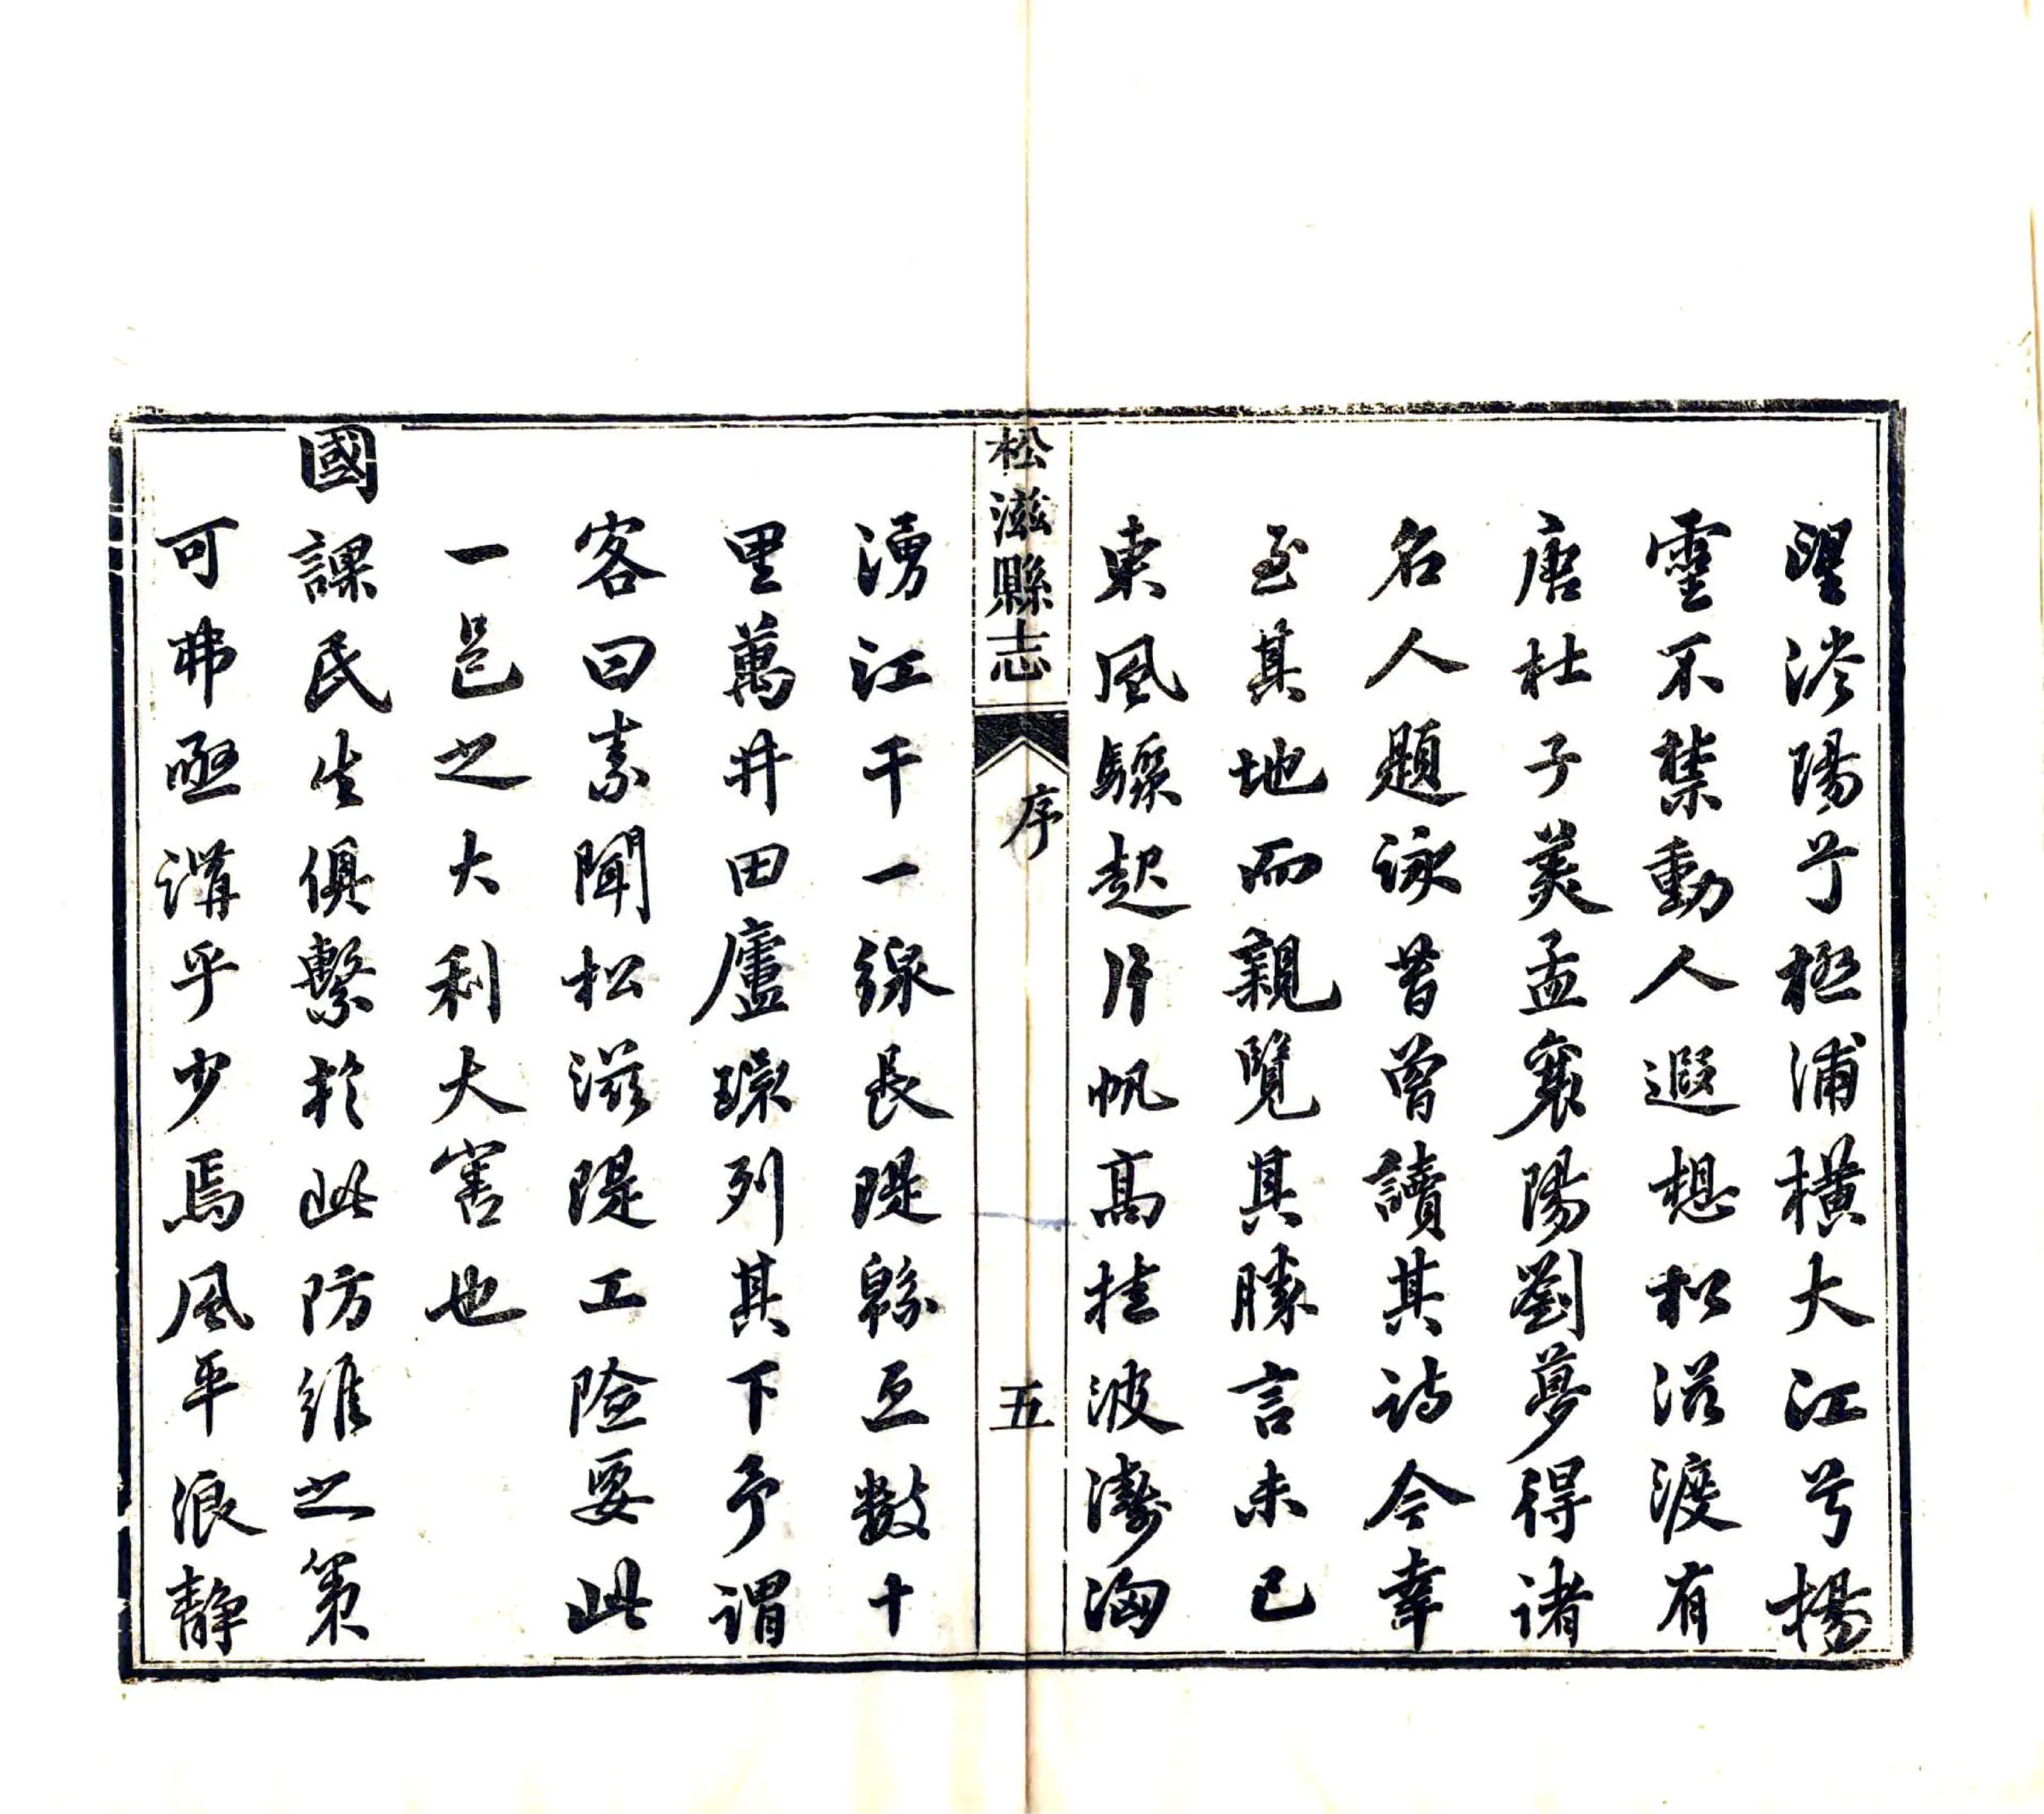 望涔陽兮極浦橫大江兮揚
靈不禁動人遐想松滋渡有
唐杜子美孟襄陽劉夢得諸
名人題詠昔曾讀其詩今幸
至其地而親覽其勝言未已
東風驟起片帆高挂波濤洶
松滋縣志
序
五
湧江干一線長隄緜亙數十
里萬井田廬環列其下予謂
客曰素聞松滋隄工險要此
一邑之大利大害也
國課民生俱繫於此防維之策
可弗亟講乎少焉風平浪靜